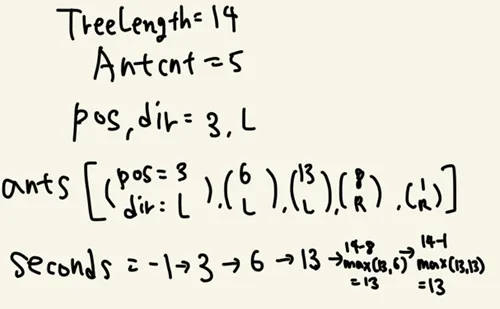 TreeLength=14
Antcnt=5
pos,dir=3,L
ants [(pos=3 dir:L),(6 L),(13 L),(8 R),(1 R)]
seconds = -1→3→6→13→14-8 max(13,6) =13→14-1 max(13,13) =13